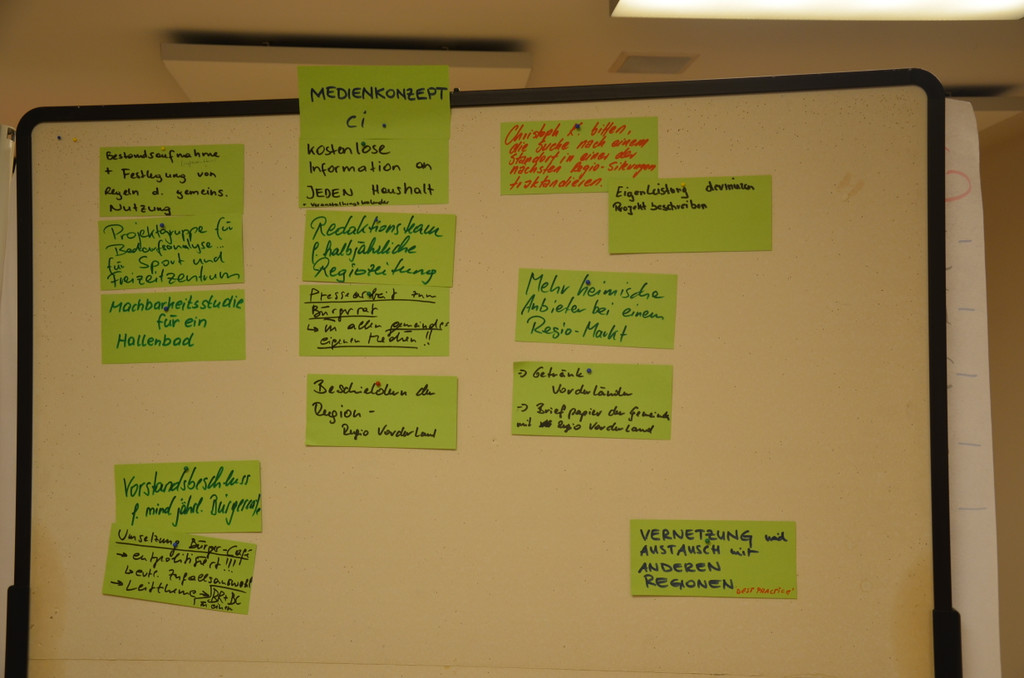 Bestandsaufnahme
+ Festlegung von
Regeln d. gemeins.
Nutzung
Projektgruppe für
Bedarfsanalyse
für Sport und
Freizeitzentrum
Machbarkeitsstudie
für ein
Hallenbad
Vorstandsbeschluss
f. mind jährl. Bürgerräte
Umsetzung Bürger-Café
→ entpolitisiert!!!!
→ evtl. Zufallsauswahl
→ Leitthema → BR+BC
MEDIENKONZEPT
Ci.
kostenlose
Information an
JEDEN Haushalt
+ Veranstaltungskalender
Redaktionsteam
f. halbjährliche
Regiozeitung
Pressearbeit zum
Bürgerrat
↳ in allen gemeinde-
eigenen Medien!!
Beschildern der
Region -
Regio Vorderland
Christoph L. bitten,
die Suche nach einem
Standort in einer der
nächsten Regio-Sitzungen
traktandieren.
Eigenleistung
Projekt beschreiben
Mehr heimische
Anbieter bei einem
Regio-Markt
→ Getränk
Vorderländer
→ Briefpapier der Gemeinden
mit Regio Vorderland
VERNETZUNG und
AUSTAUSCH mit
ANDEREN
REGIONEN
"BEST PRACTICE"